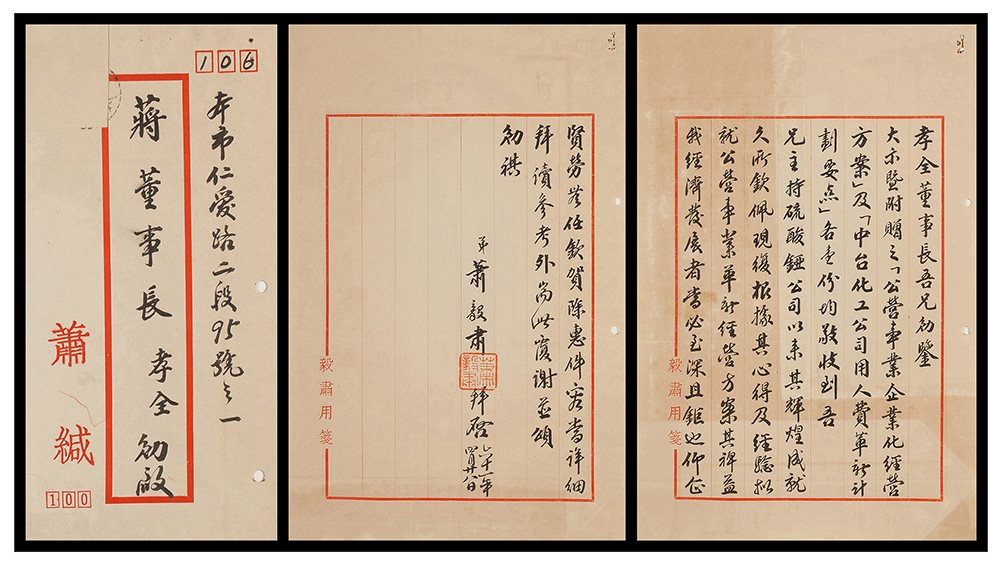 孝全董事長吾兄勛鑒
大示暨附贈之「公營事業企業化經營
方案」及「中台化工公司用人費革新計
劃要點」各壹份均敬收到吾
兄主持硫酸錏公司以來其輝煌成就
久所欽佩現復根據其心得及經驗擬
就公營事業革新經營方案其裨益
我經濟發展者當必至深且鉅也仰企
毅肅用箋
賢勞 任欽賀除惠件容當詳細
拜讀參考外耑泐覆謝並頌
勛祺
弟蕭毅肅拜啓 六十一年四月廿八日
毅肅用箋
106
本市仁愛路二段95號之一
蔣董事長 孝全 勛啟
蕭緘
100